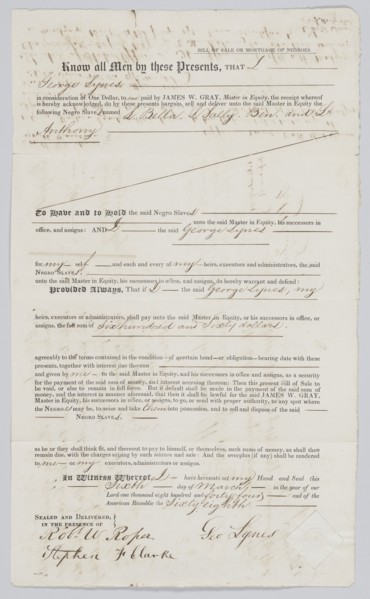 BILL OF SALE OR MORTGAGE OF NEGROES
Know all Men by these Presents, THAT I
George Synes
in consideration of One Dollar, to me paid by JAMES W. GRAY, Master in Equity, the receipt whereof
is hereby acknowledged, do by these presents bargain, sell and deliver unto the said Master in Equity the
following Negro Slaves named Bella, Sally, Ben, and
Anthony
To Have and to Hold the said Negro Slaves
unto the said Master in Equity, his successors in
office, and assigns: AND I the said George Synes
for my self and each and every of my heirs, executors and administrators, the said
NEGRO SLAVES
unto the said Master in Equity, his successors in office, and assigns, do hereby warrant and defend:
Provided Always, That if I the said George Synes, my
heirs, executors or administrators, shall pay unto the said Master in Equity, or his successors in office, or
assigns, the full sum of Six hundred and Sixty dollars.
agreeably to the terms contained in the condition of a certain bond or obligation bearing date with these
presents, together with interest due thereon
and given by me to the said Master in Equity, and his successors in office and assigns, as a security
for the payment of the said sum of money, and interest accruing thereon: Then this present Bill of Sale to
be void, or else to remain in full force. But if default shall be made in the payment of the said sum of
money, and the interest in manner aforesaid, that then it shall be lawful for the said JAMES W. GRAY,
Master in Equity, his successors in office, or assigns, to go, or send with proper authority, to any spot where
the NEGROES may be, to seize and take them into possession, and to sell and dispose of the said
NEGRO SLAVES.
as he or they shall think fit, and thereout to pay to himself, or themselves, such sum of money, as shall then
remain due, with the charges arising by such seizure and sale: And the overplus (if any) shall be rendered
to me or my executors, administrators or assigns.
In Witness Whereof, I have hereunto set my Hand and Seal this
Sixth day of March in the year of our
Lord one thousand eight hundred and forty four and of the
American Independence the Sixty eighth
SEALED AND DELIVERED,
IN THE PRESENCE OF
Robt. W Roper Geo Synes
Stephen F Clarke